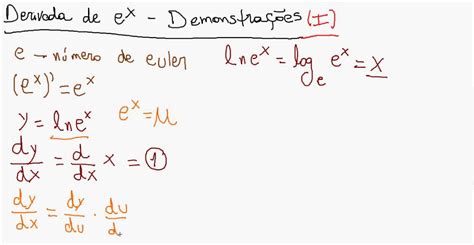 Derivada de e^x - Demonstrações (I)
e → número de euler
ln e^x = log_e e^x = x
(e^x)' = e^x
y = ln e^x
e^x = μ
dy/dx = d/dx x = 1
dy/dx = dy/du · du/d